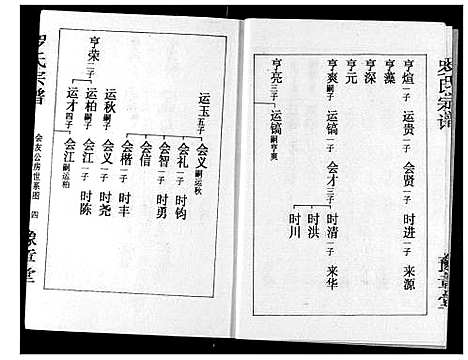 罗氏宗谱
豫章堂
亨煊 一子 运贵 一子 会贤 一子 时进 一子 来源
亨藻
亨深
亨元
亨爽 嗣子 运镐 一子 会才 三子 时清 一子 来华
时洪
时川
亨亮 三子 运镐 嗣亨爽
运玉 五子 会义 嗣运秋
会礼 一子 时钧
会智 一子 时勇
会信
会楷 一子 时丰
运秋 嗣子 会义 一子 时尧
亨荣 二子 运柏 嗣子 会江 一子 时陈
运才 四子 会江 嗣运柏
罗氏宗谱
会友公房世系图 四
豫章堂